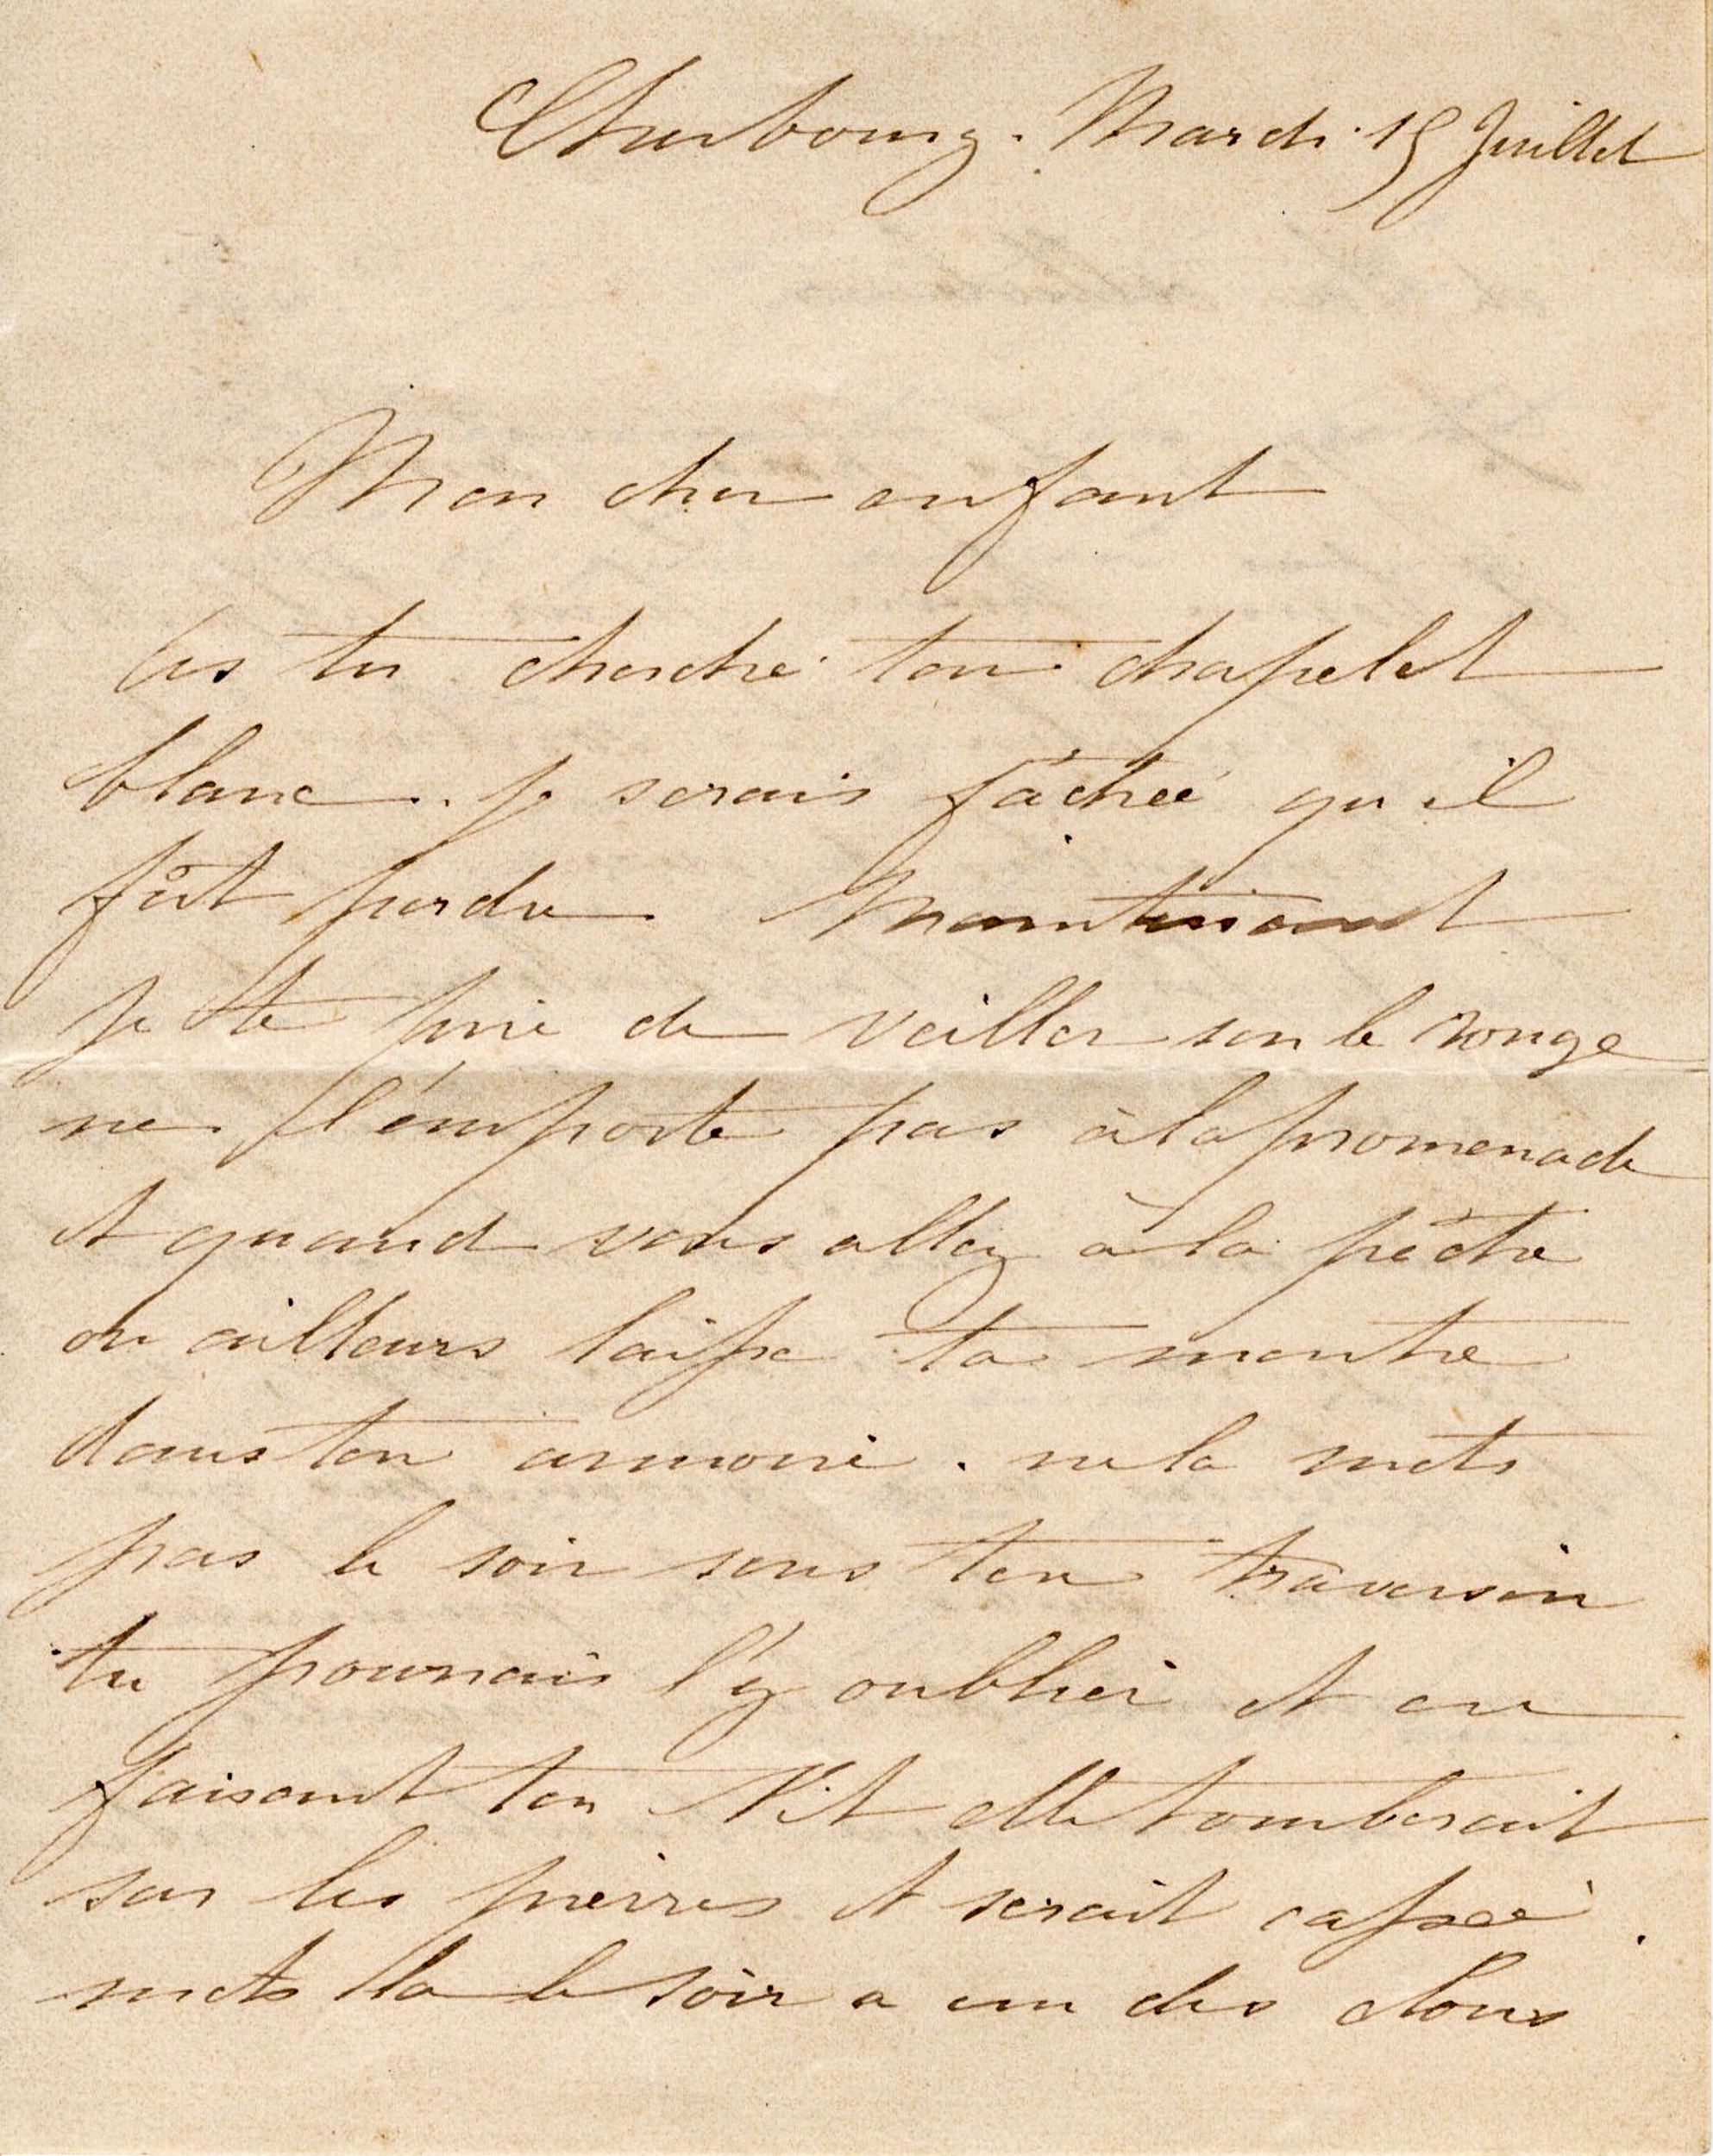 Cherbourg. Mardi 15 Juillet
Mon cher enfant
As tu cherché ton chapelet
blanc. je serais fâchée qu'il
fût perdu. Maintenant
je te prie de veiller sur le rouge
ne l'emporte pas à la promenade
et quand vous allez à la pêche
ou ailleurs laisse ta montre
dans ton armoire. ne la mets
pas le soir sous ton traversin
tu pourrais l'y oublier et en
faisant ton lit elle tomberait
sur les pierres et serait cassée.
mets la le soir a un des clous